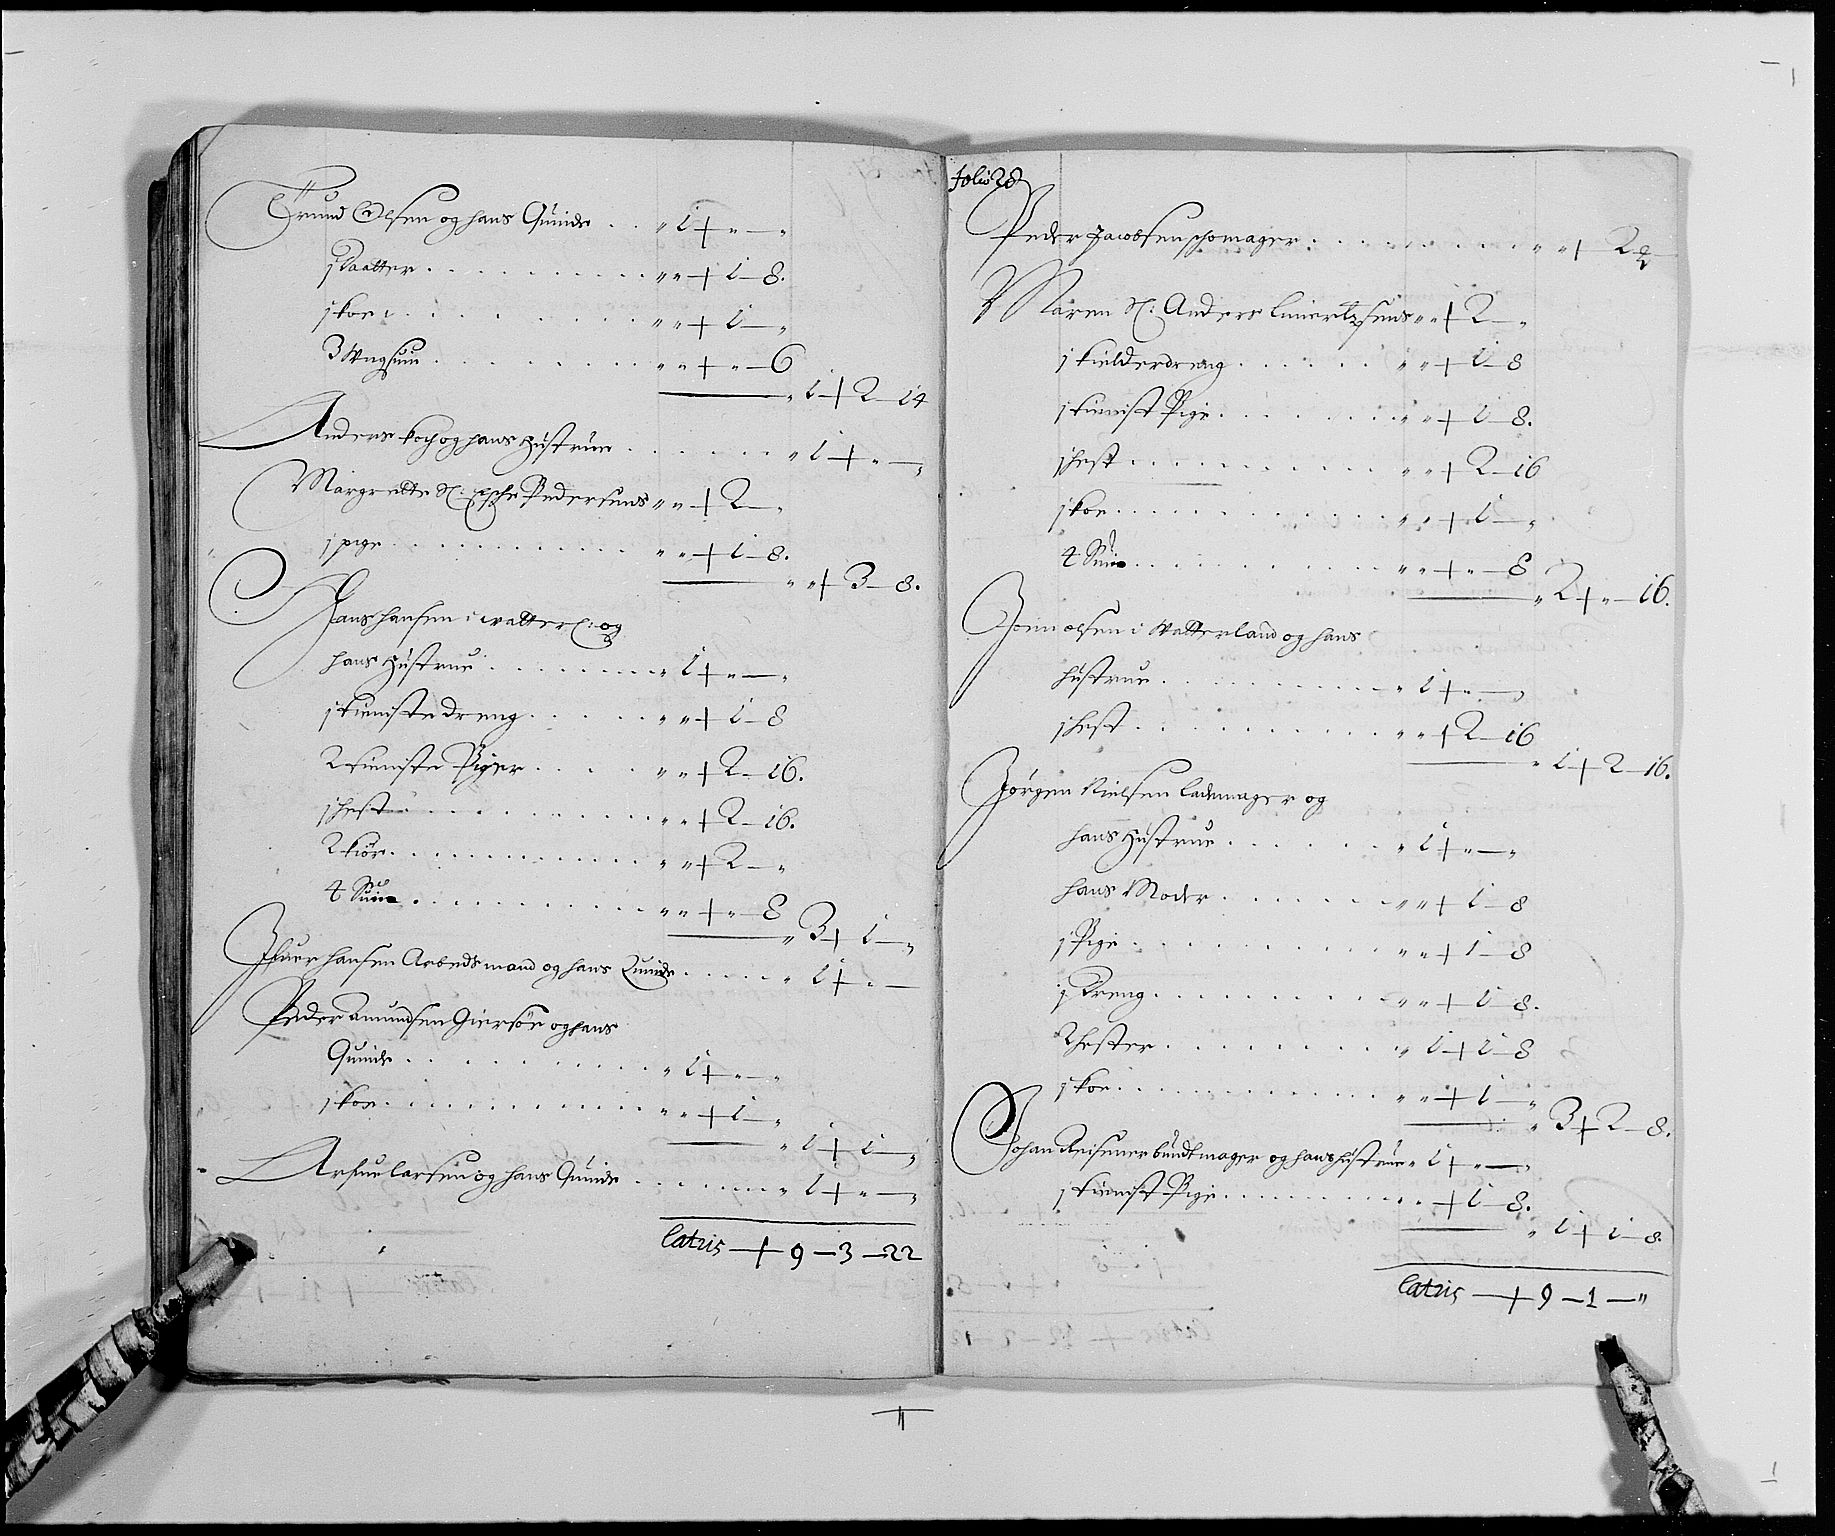 Trund Olsen og hans Quinde . . " 1 + " — "
j Daatter . . . " " + 1 — 8.
j koe . . . " " + 1 — "
3 Ungsuin . . . " " + " — 6
" 1 + 2 — 14
Anders koch og hans Hustrue . . . " 1 + " — "
Margrette Sl: Pedersens " " + 2 — "
j pige . . . " " + 1 — 8.
" " + 3 — 8.
Hans hansen i watterl: og
hans Hustrue . . . " 1 + " — "
j tieniste dreng . . . " " + 1 — 8
2 tieniste Piger . . . " " + 2 — 16.
j hest . . . " " + 2 — 16.
2 kiør . . . " " + 2 — "
4 Suin . . . " " + " — 8
" 3 + 1 — "
Ifuer hansen Arbeds mand og hans Quinde . . . " 1 + " —
Peder Amundsen Giersøe og hans
Quinde . . . " 1 + " — "
j koe . . . " " + 1 — "
" 1 + 1 — "
larsen og hans Quinde . . . " 1 + " — "
Latus — + 9 — 3 — 22
folio 28
Peder Jacobsen schomager . . . " " + 2
Maren Sl: Anders " " + 2 — "
j kielderdreng . . . " " + 1 — 8
j tienist Pige . . . " " + 1 — 8.
j hest . . . " " + 2 — 16
j koe . . . " " + 1 — "
4 Suin . . . " " + " — 8
" 2 + " — 16.
olsen i Watterland og hans
hustrue . . . " 1 + " — "
j hest . . . " " + 2 — 16
" 1 + 2 — 16.
Jørgen Nielsen lademager og
hans Hustrue . . . " 1 + " — "
hans Moder . . . " " + 1 — 8
j Pige . . . " " + 1 — 8
j Dreng . . . " " + 1 — 8.
2 hester . . . " 1 + 1 — 8
j koe . . . " " + 1 — "
" 3 + 2 — 8.
Johan Reisener bundtmager og hans hustrue " 1 + " — "
j tienist Pige . . . " " + 1 — 8.
" 1 + 1 — 8.
Latus — + 9 — 1 — "